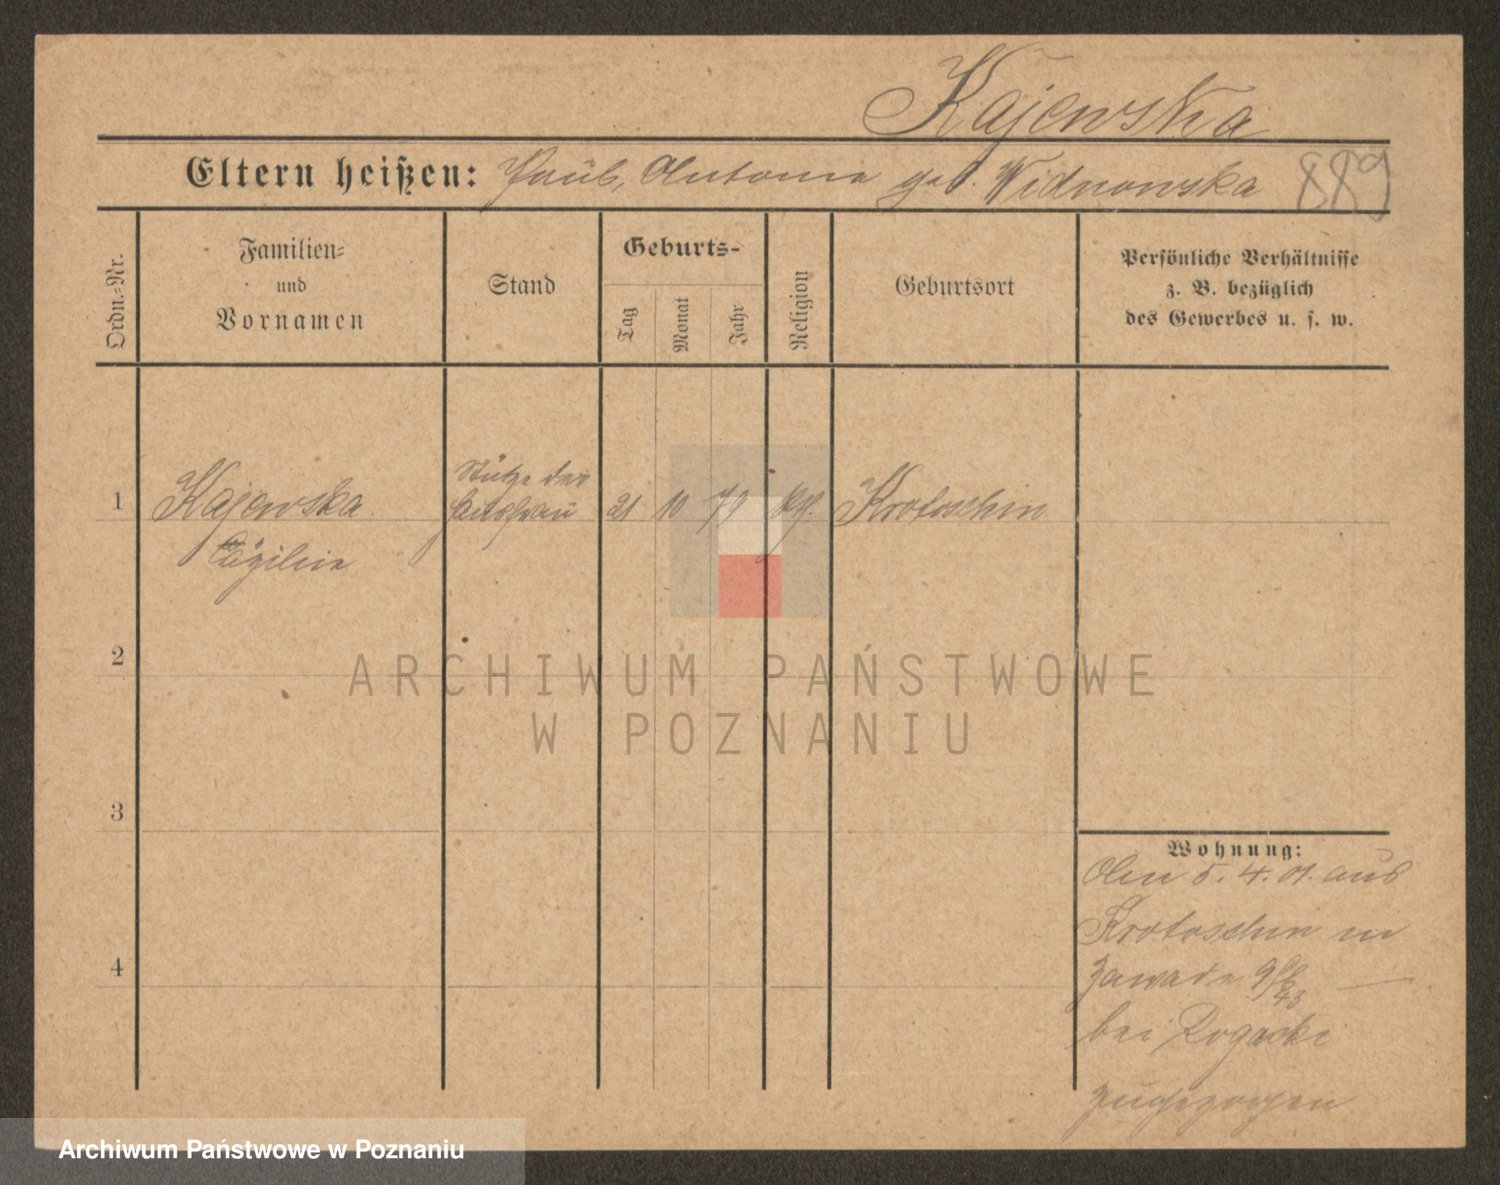 Kajewska
Eltern heißen: Paul, Antonie geb. Widnowska 889
Ordn.-Nr.
Familien-
und
Vornamen
Stand
Geburts-
Tag
Monat
Jahr
Religion
Geburtsort
Persönliche Verhältnisse
z. B. bezüglich
des Gewerbes u. s. w.
1
Kajewska
Cäzilie
Stütze der
Hausfrau
21 10 79
Krotoschin
2
3
4
Wohnung:
Am 5. 4. 01. aus
Krotoschin in
Zawade
bei Rogacki
zugezogen
ARCHIWUM PAŃSTWOWE
W POZNANIU
Archiwum Państwowe w Poznaniu